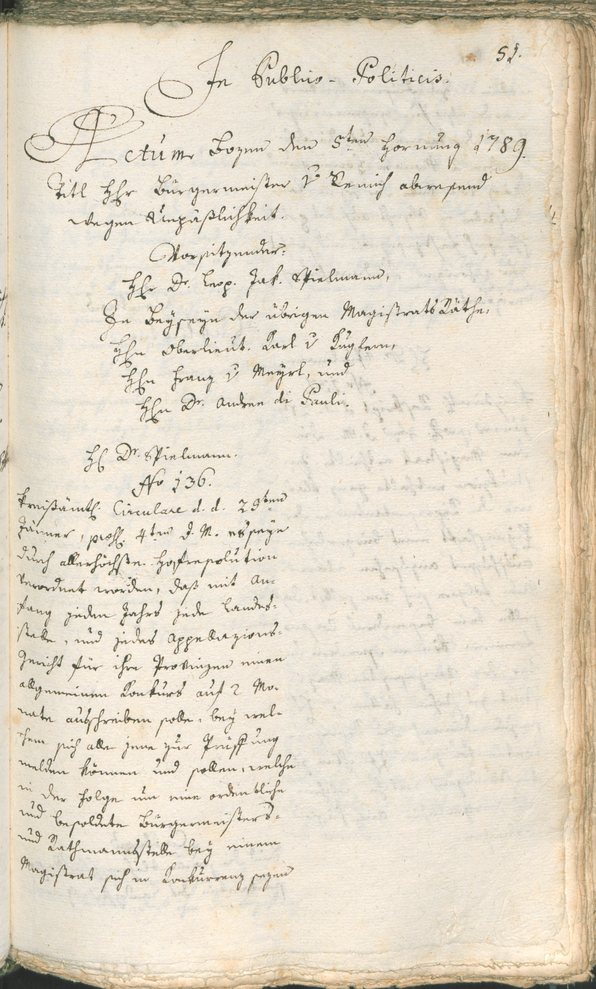 51.
In Publico-Politicis.
Actum Bozen den 5ten Hornung 1789.
Titl Hhr Bürgermeister v abwesend
wegen Unpäßlichkeit.
Vorsitzender:
Hhr Dr. Leop. Jak. Spielmann,
In Beyseyn der übrigen Magistrats Räthe,
Hhn Oberlieut. Karl v Kuglern,
Hhn Franz v Meyrl, und
Hhn Dr. Andree di Pauli.
Hh Dr. Spielmann.
No 136.
Kreisämtl. Circulare d. d. 29ten
Jänner, 4ten d. M. es seye
durch allerhöchste Hofresolution
verordnet worden, daß mit An-
fang jeden Jahrs jede Landes-
stelle, und jedes Appellazions-
gericht für ihre Provinzen einen
allgemeinen Konkurs auf 2 Mo-
nate ausschreiben solle, bey wel-
chem sich alle jene zur Prüffung
melden können und sollen, welche
in der Folge um eine ordentliche
und besoldete Bürgermeisters-
und Rathmannsstelle bey einem
Magistrat sich in Konkurrenz sezen